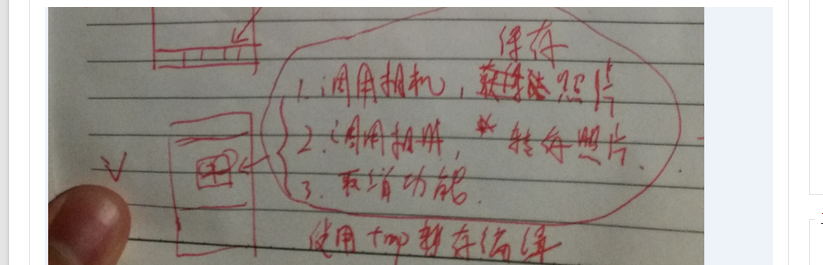 保存
1. 调用相机，获得照片
2. 调用相册，转存照片.
3. 取消功能.
使用tmp暂存